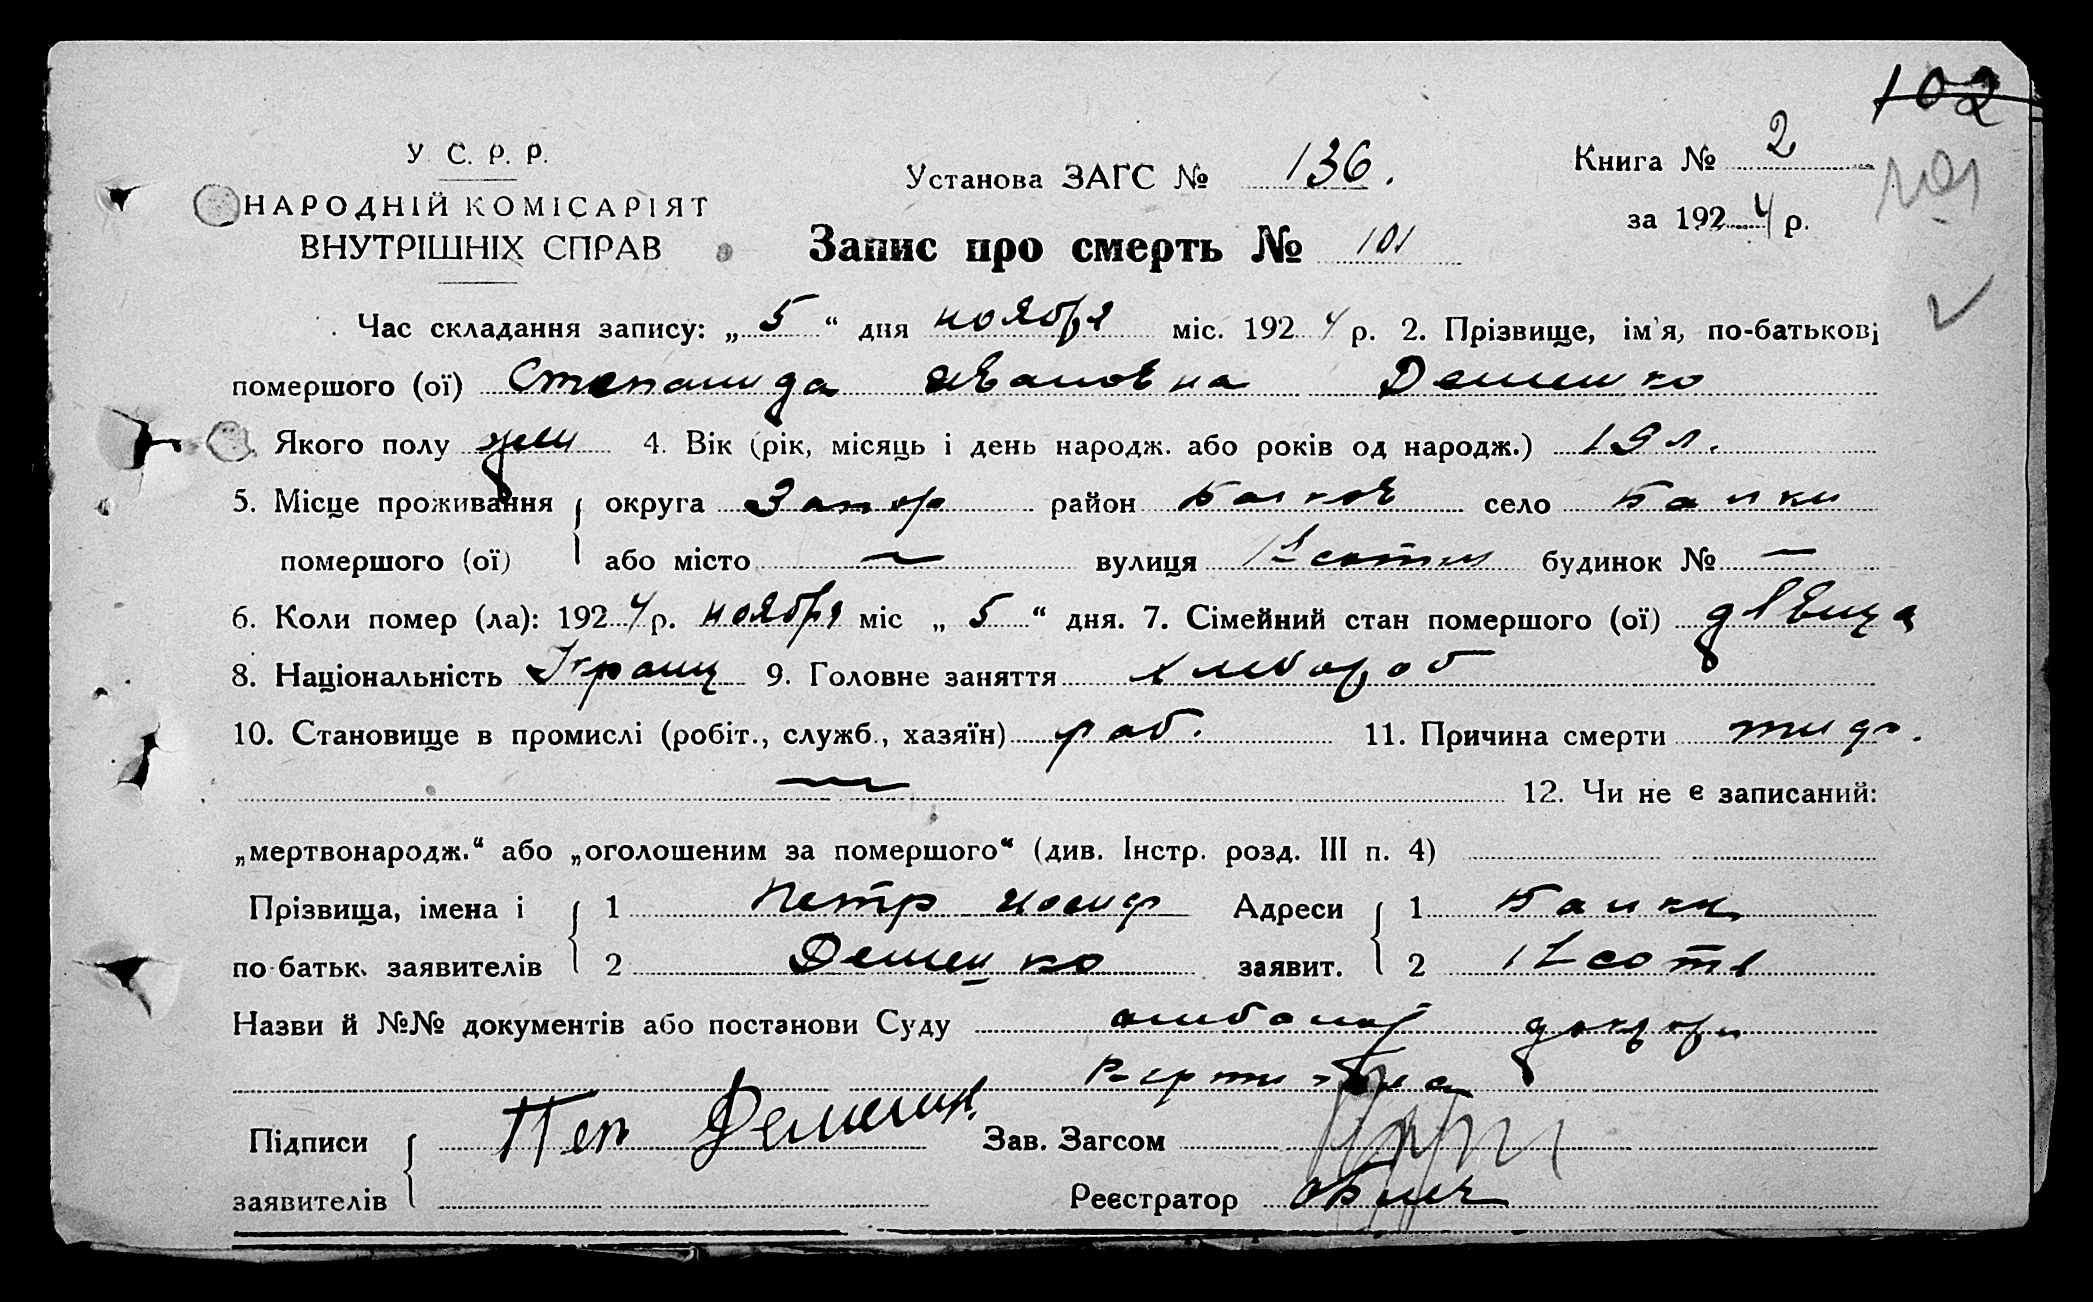 102
У. С. Р. Р.
НАРОДНІЙ КОМІСАРІЯТ
ВНУТРІШНІХ СПРАВ
Установа ЗАГС № 136.
Книга № 2
за 1924 р.
101
Запис про смерть № 101
Час складання запису: „5“ дня ноября міс. 1924 р. 2. Прізвище, ім'я, по-батькові
помершого (ої) Степанида Ивановна
Якого полу жен 4. Вік (рік, місяць і день народж. або років од народж.) 19 л.
5. Місце проживання округа Запор район Балков село Балки
помершого (ої) або місто — вулиця 12 сотни будинок № —
6. Коли помер (ла): 1924 р. ноября міс „5“ дня. 7. Сімейний стан помершого (ої) девица
8. Національність Украин 9. Головне заняття хлебороб
10. Становище в промислі (робіт., служб., хазяїн) раб. 11. Причина смерти тиф.
— 12. Чи не є записаний:
„мертвонародж.“ або „оголошеним за помершого“ (див. Інстр. розд. III п. 4)
Прізвища, імена і 1 Петр Иосиф Адреси 1 Балки
по-батьк. заявителів 2 заявит. 2 12 сотн
Назви й №№ документів або постанови Суду
Підписи Пет Зав. Загсом
заявителів Реєстратор